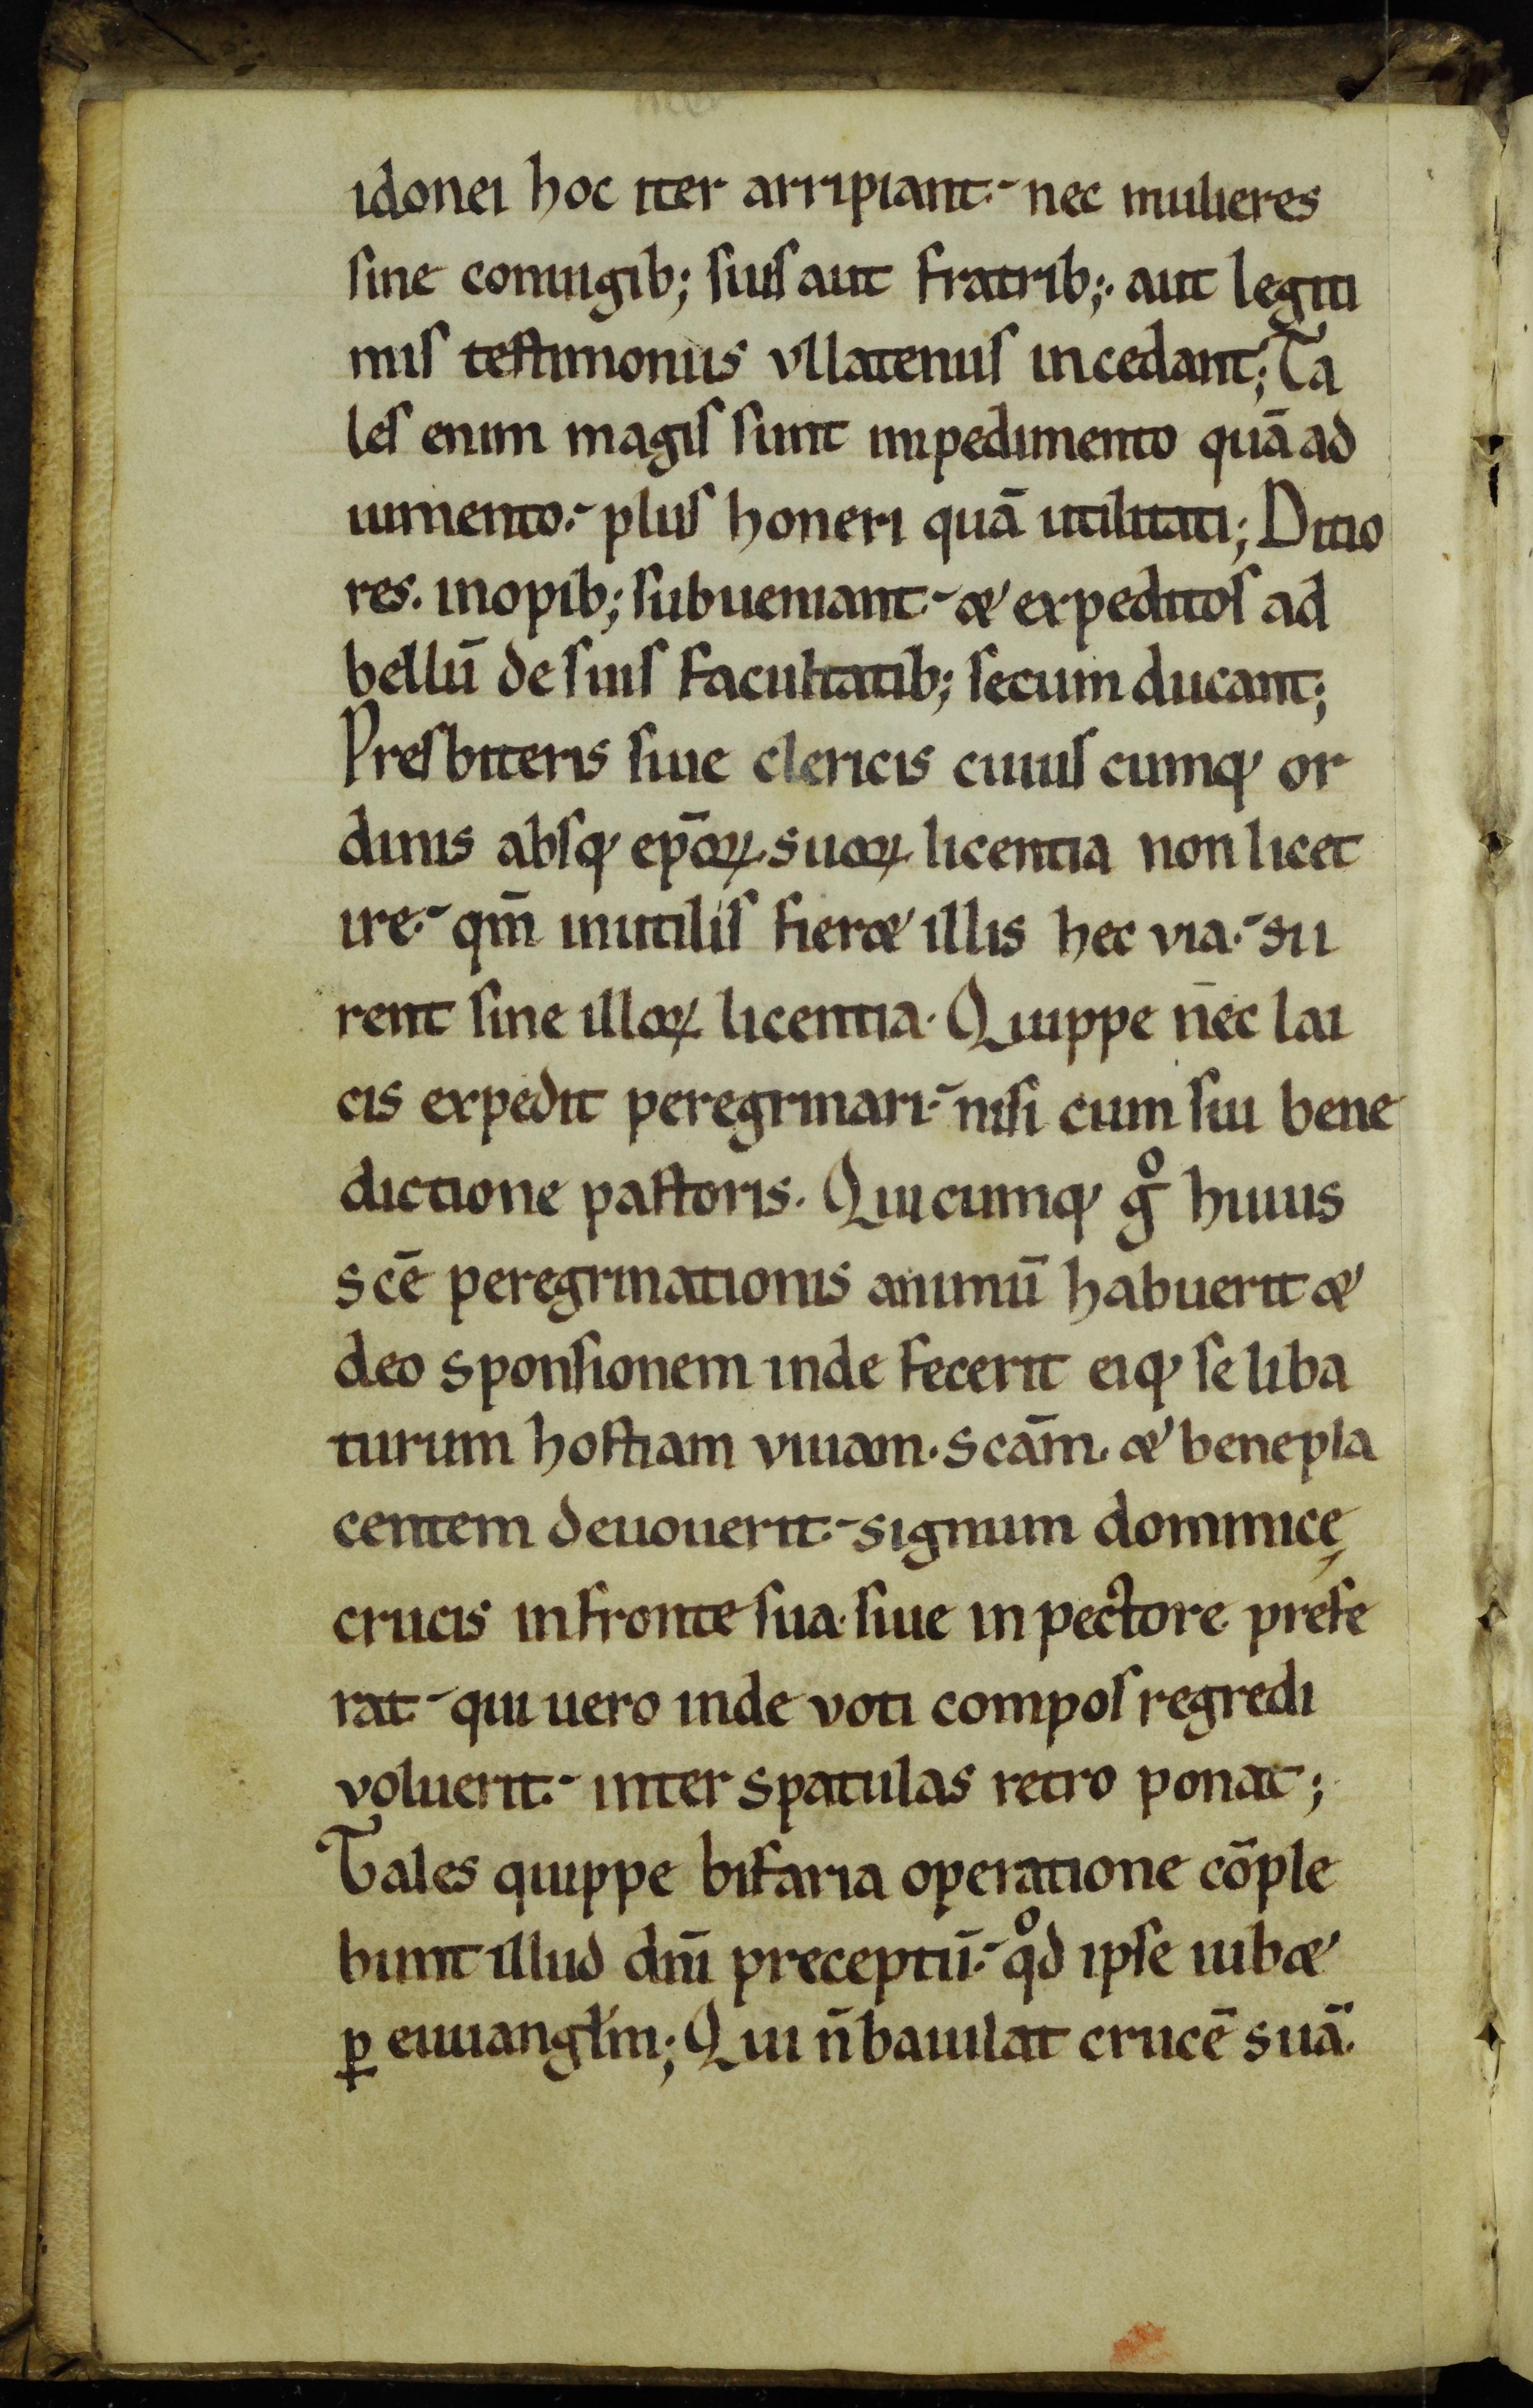 idonei hoc iter arripiant.᷎ nec mulieres
sine coniugib; suis aut fratrib;. aut legiti
mis testimoniis vllatenus incedant; Ta
les enim magis sunt impedimento quā ad
iumento.᷎ plus honeri quā utilitati; Ditio
res. inopib; subueniant.᷎ & expeditos ad
bellū de suis facultatib; secum ducant;
Presbiteris siue clericis cuiuscumq; or
dinis absq; ep̄oꝝ suoꝝ licentia non licet
ire.᷎ qm̄ inutilis fier& illis hec via.᷎ si i
rent sine illoꝝ licentia. Quippe nec lai
cis expedit peregrinari.᷎ nisi cum sui bene
dictione pastoris. Quicumq; gͦ huius
scē peregrinationis animū habuerit &
deo sponsionem inde fecerit eiq; se liba
turum hostiam viuam. scām. & benepla
centem deuouerit.᷎ signum dominicę
crucis in fronte sua. siue in pectore prefe
rat.᷎ qui uero inde voti compos regredi
voluerit.᷎ inter spatulas retro ponat;
Tales quippe bifaria operatione cōple
bunt illud dn̄i preceptū.᷎ qͦd ipse iub&
ꝑ euuangłm; Qui n̄ baiulat crucē suā.